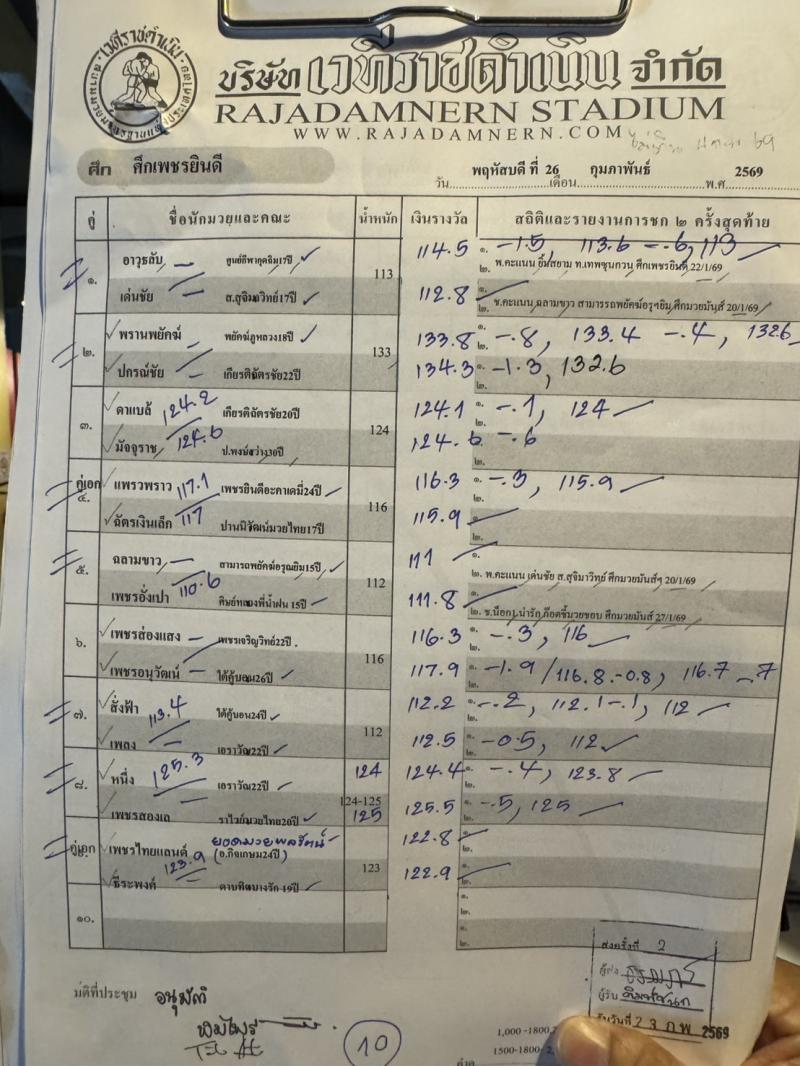 เวทีราชดำเนิน
บริษัท เวทีราชดำเนิน จำกัด
RAJADAMNERN STADIUM
WWW.RAJADAMNERN.COM
ศึก ศึกเพชรยินดี
วัน พฤหัสบดี ที่ 26 เดือน กุมภาพันธ์ พ.ศ 2569
คู่ ชื่อนักมวยและคณะ น้ำหนัก เงินรางวัล สถิติและรายงานการชก ๒ ครั้งสุดท้าย
๑. อาวุธลับ 17ปี 113 114.5 ๑. -1.5, 113.6 -.6, 113
๒. พ.คะแนน ยิ้มสยาม ท.เทพซุนกวน ศึกเพชรยินดี 22/1/69
เด่นชัย ส.สุจิมาวิทย์17ปี 112.8 ๑.
๒. ช.คะแนน ฉลามขาว สามารถพยัคฆ์อรุฯยิม ศึกมวยมันส์ 20/1/69
๒. พรานพยัคฆ์ พยัคฆ์ภูหลวง18ปี 133 133.8 ๑. ๒. -.8, 133.4 -.4, 132.6
ปกรณ์ชัย เกียรติฉัตรชัย22ปี 134.3 ๑. ๒. -1.3, 132.6
๓. ดาแบล้ 124.2 เกียรติฉัตรชัย20ปี 124 124.1 ๑. ๒. -.1, 124
มัจจุราช 124.6 ป.พงษ์สว่าง30ปี 124.6 ๑. ๒. -.6
คู่เอก ๔. แพรวพราว 117.1 เพชรยินดีอะคาเดมี่24ปี 116 116.3 ๑. ๒. -.3, 115.9
ฉัตรเงินเล็ก 117 ปานนิวัฒน์มวยไทย17ปี 115.9 ๑. ๒.
๕. ฉลามขาว สามารถพยัคฆ์อรุณยิม15ปี 112 111 ๑.
๒. พ.คะแนน เด่นชัย ส.สุจิมาวิทย์ ศึกมวยมันส์ฯ 20/1/69
เพชรอั่งเปา 110.6 15ปี 111.8 ๑.
๒. ช.น็อก1.น่ารัก ก๊อตชี้มวยชอบ ศึกมวยมันส์ 27/1/69
๖. เพชรส่องแสง เพชรเจริญวิทย์22ปี 116 116.3 ๑. ๒. -.3, 116
เพชรอนุวัฒน์ ใต้คู้บอน26ปี 117.9 ๑. ๒. -1.9 / 116.8.-0.8, 116.7 -.7
๗. สั่งฟ้า 113.4 ใต้คู้บอน24ปี 112 112.2 ๑. ๒. -.2, 112.1 -.1, 112
เพลง เอราวัณ22ปี 112.5 ๑. ๒. -0.5, 112
๘. หนึ่ง 125.3 เอราวัณ22ปี 124 124.4 ๑. ๒. -.4, 123.8
124-125
เพชรสองเล ราไวย์มวยไทย20ปี 125 125.5 ๑. ๒. -.5, 125
คู่เอก เพชรไทยแลนด์ ยอดมวยพลรัตน์ (อ.กิจเกษม24ปี) 123 122.8 ๑. ๒.
ธีระพงศ์ 123.9 19ปี 122.9 ๑. ๒.
๑๐. ๑. ๒.
๑. ๒.
มติที่ประชุม อนุมัติ
ส่งครั้งที่ 2
ผู้ส่ง
ผู้รับ
วันที่ 23 ก.พ 2569
10
1,000 -1800
1500-1800